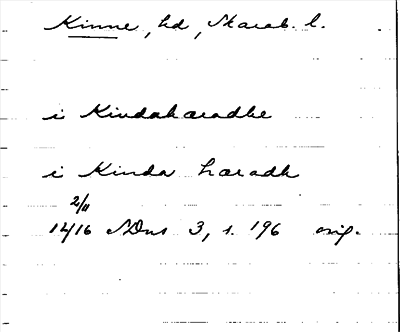 Kinne, hd, Skarab. l.
i Kindahæradhe
i Kinda hæradh
2/11
1416 SDns 3, s. 196 orig.